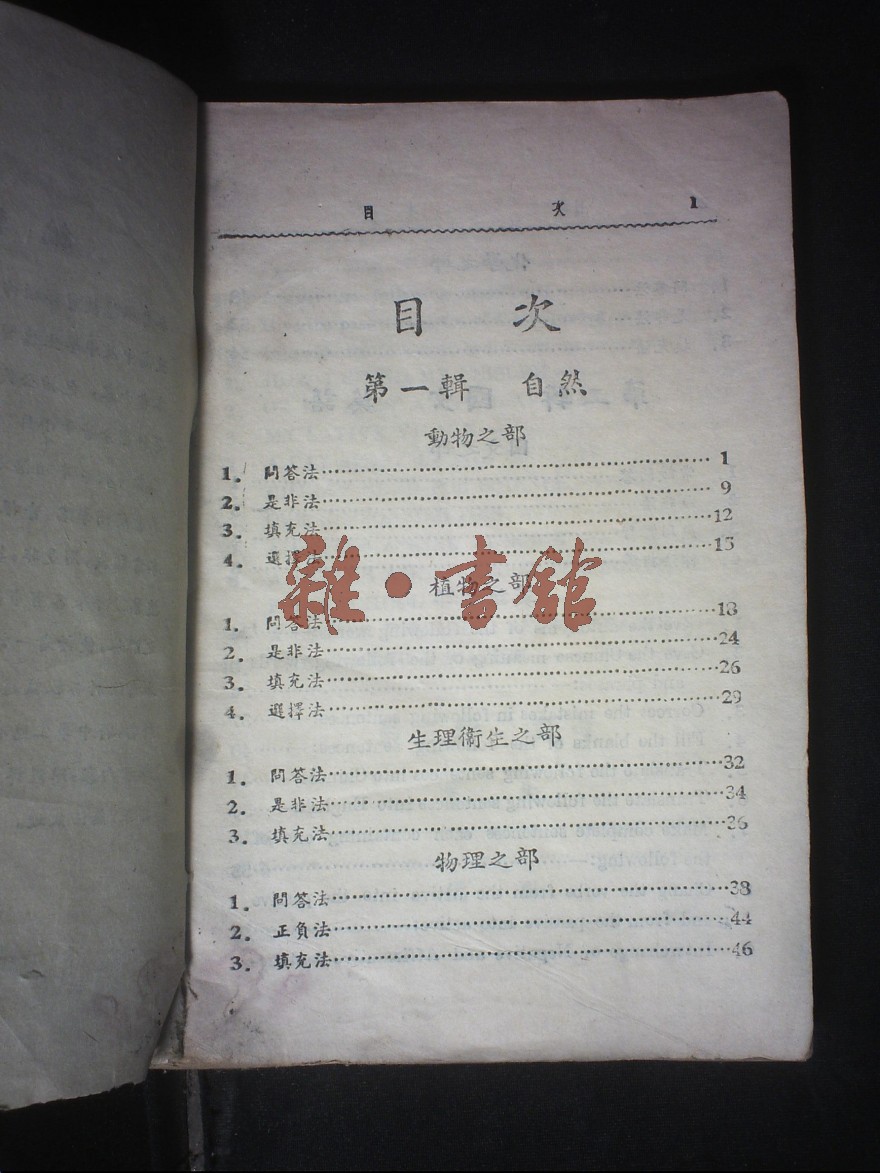 目 次 1
目 次
第一輯 自然
動物之部
1. 問答法 1
2. 是非法 9
3. 填充法 12
4. 選擇法 15
雜·書館
植物之部
1. 問答法 18
2. 是非法 24
3. 填充法 26
4. 選擇法 29
生理衞生之部
1. 問答法 32
2. 是非法 34
3. 填充法 36
物理之部
1. 問答法 38
2. 正負法 44
3. 填充法 46